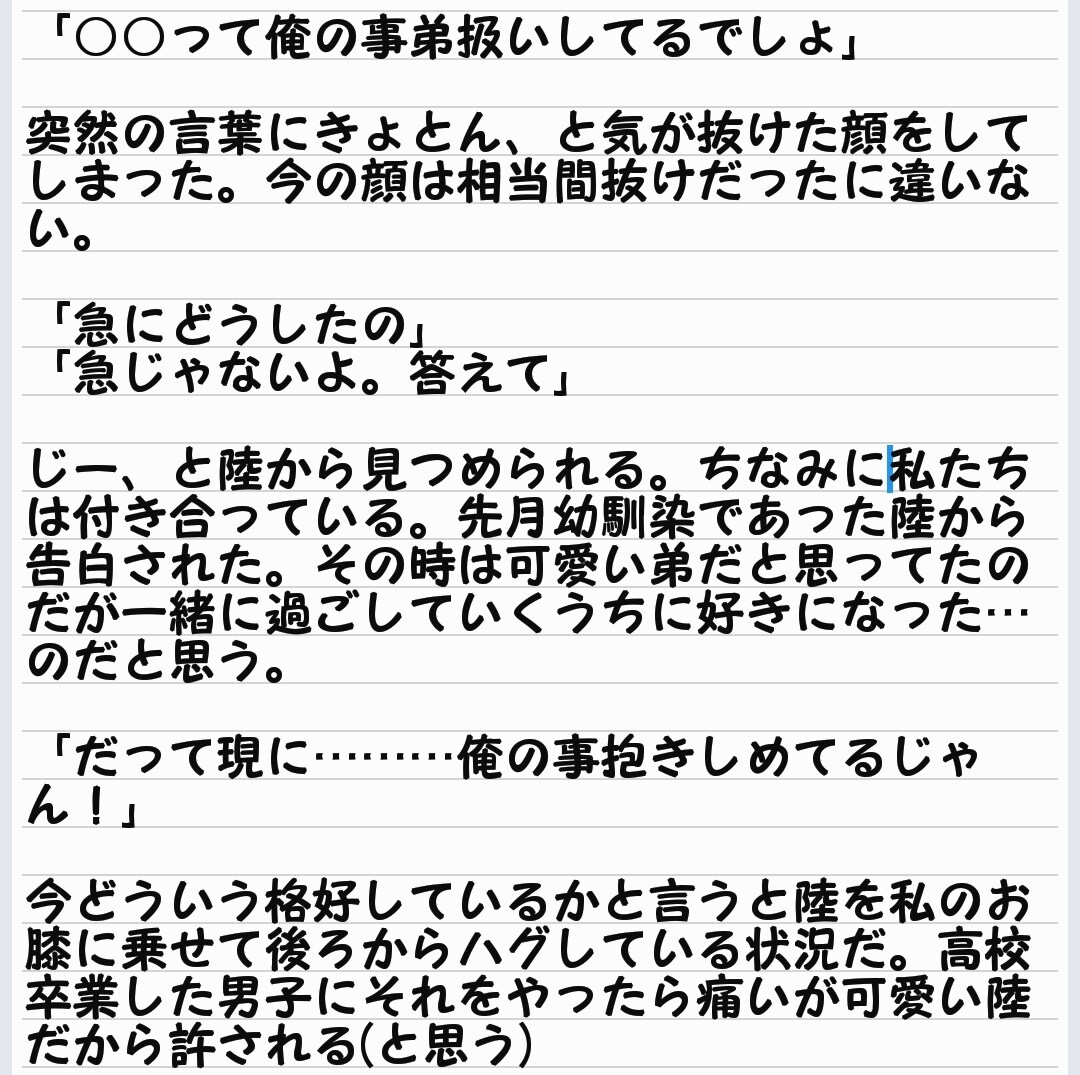 「○○って俺の事弟扱いしてるでしょ」
突然の言葉にきょとん、と気が抜けた顔をして
しまった。今の顔は相当間抜けだったに違いな
い。
「急にどうしたの」
「急じゃないよ。答えて」
じー、と陸から見つめられる。ちなみに私たち
は付き合っている。先月幼馴染であった陸から
告白された。その時は可愛い弟だと思ってたの
だが一緒に過ごしていくうちに好きになった…
のだと思う。
「だって現に………俺の事抱きしめてるじゃ
ん！」
今どういう格好しているかと言うと陸を私のお
膝に乗せて後ろからハグしている状況だ。高校
卒業した男子にそれをやったら痛いが可愛い陸
だから許される(と思う)